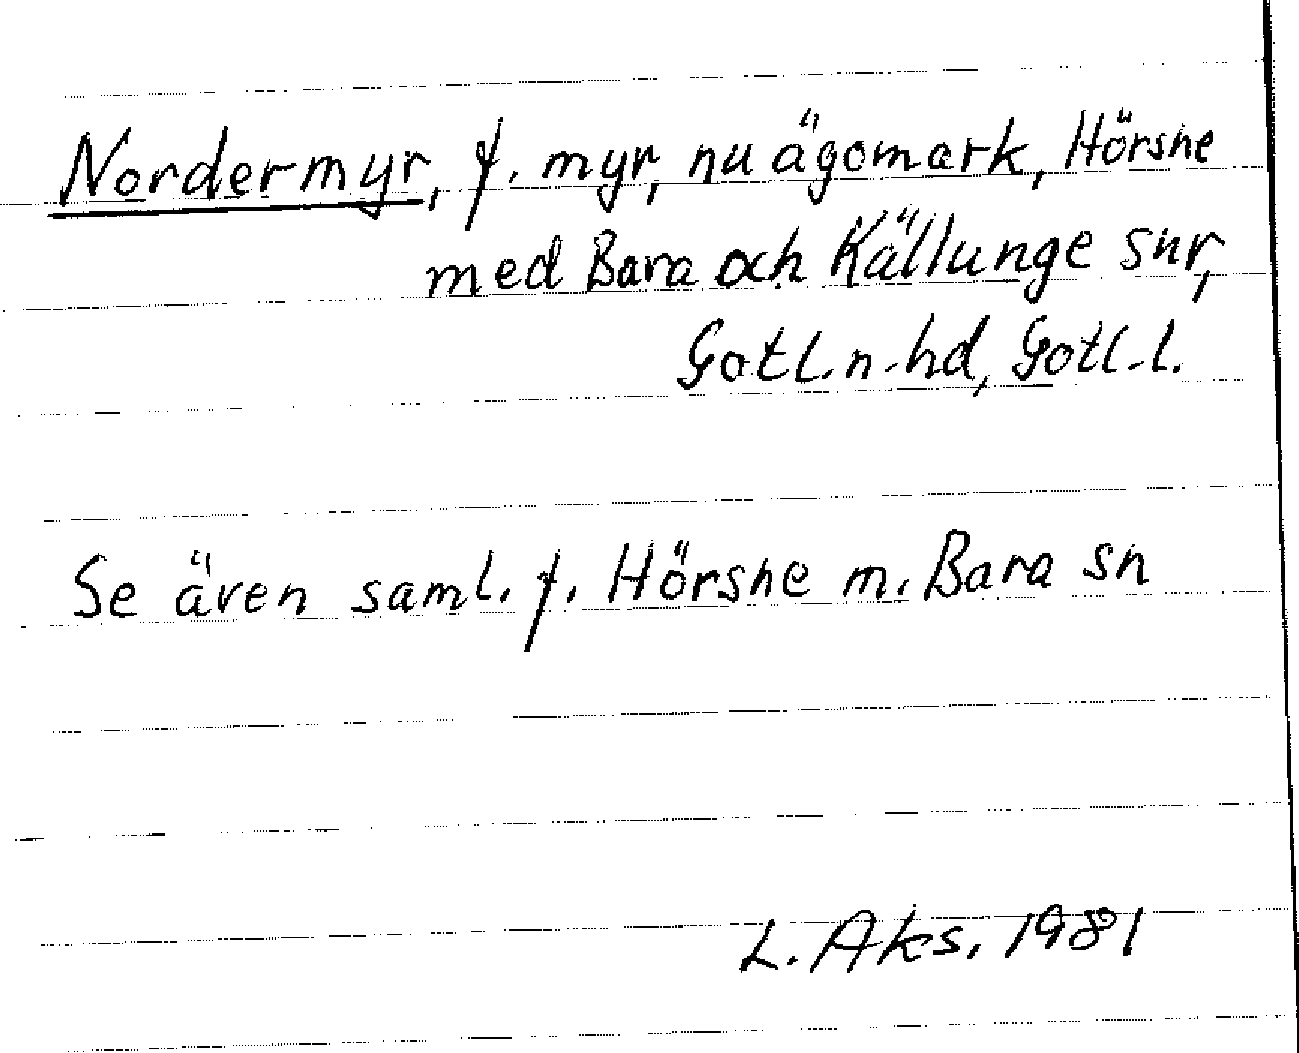 Nordermyr, f. myr, nu ägomark, Hörsne
med Bara och Källunge snr,
Gotl. n. hd, Gotl. l.
Se även saml. f. Hörsne m. Bara sn
L. Aks. 1981